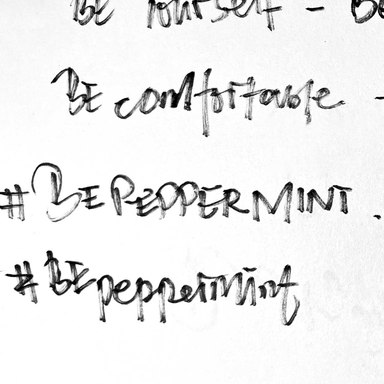 BE Yourself - Be
BE comfortable -
# BE PEPPERMINT.
# BE peppermint